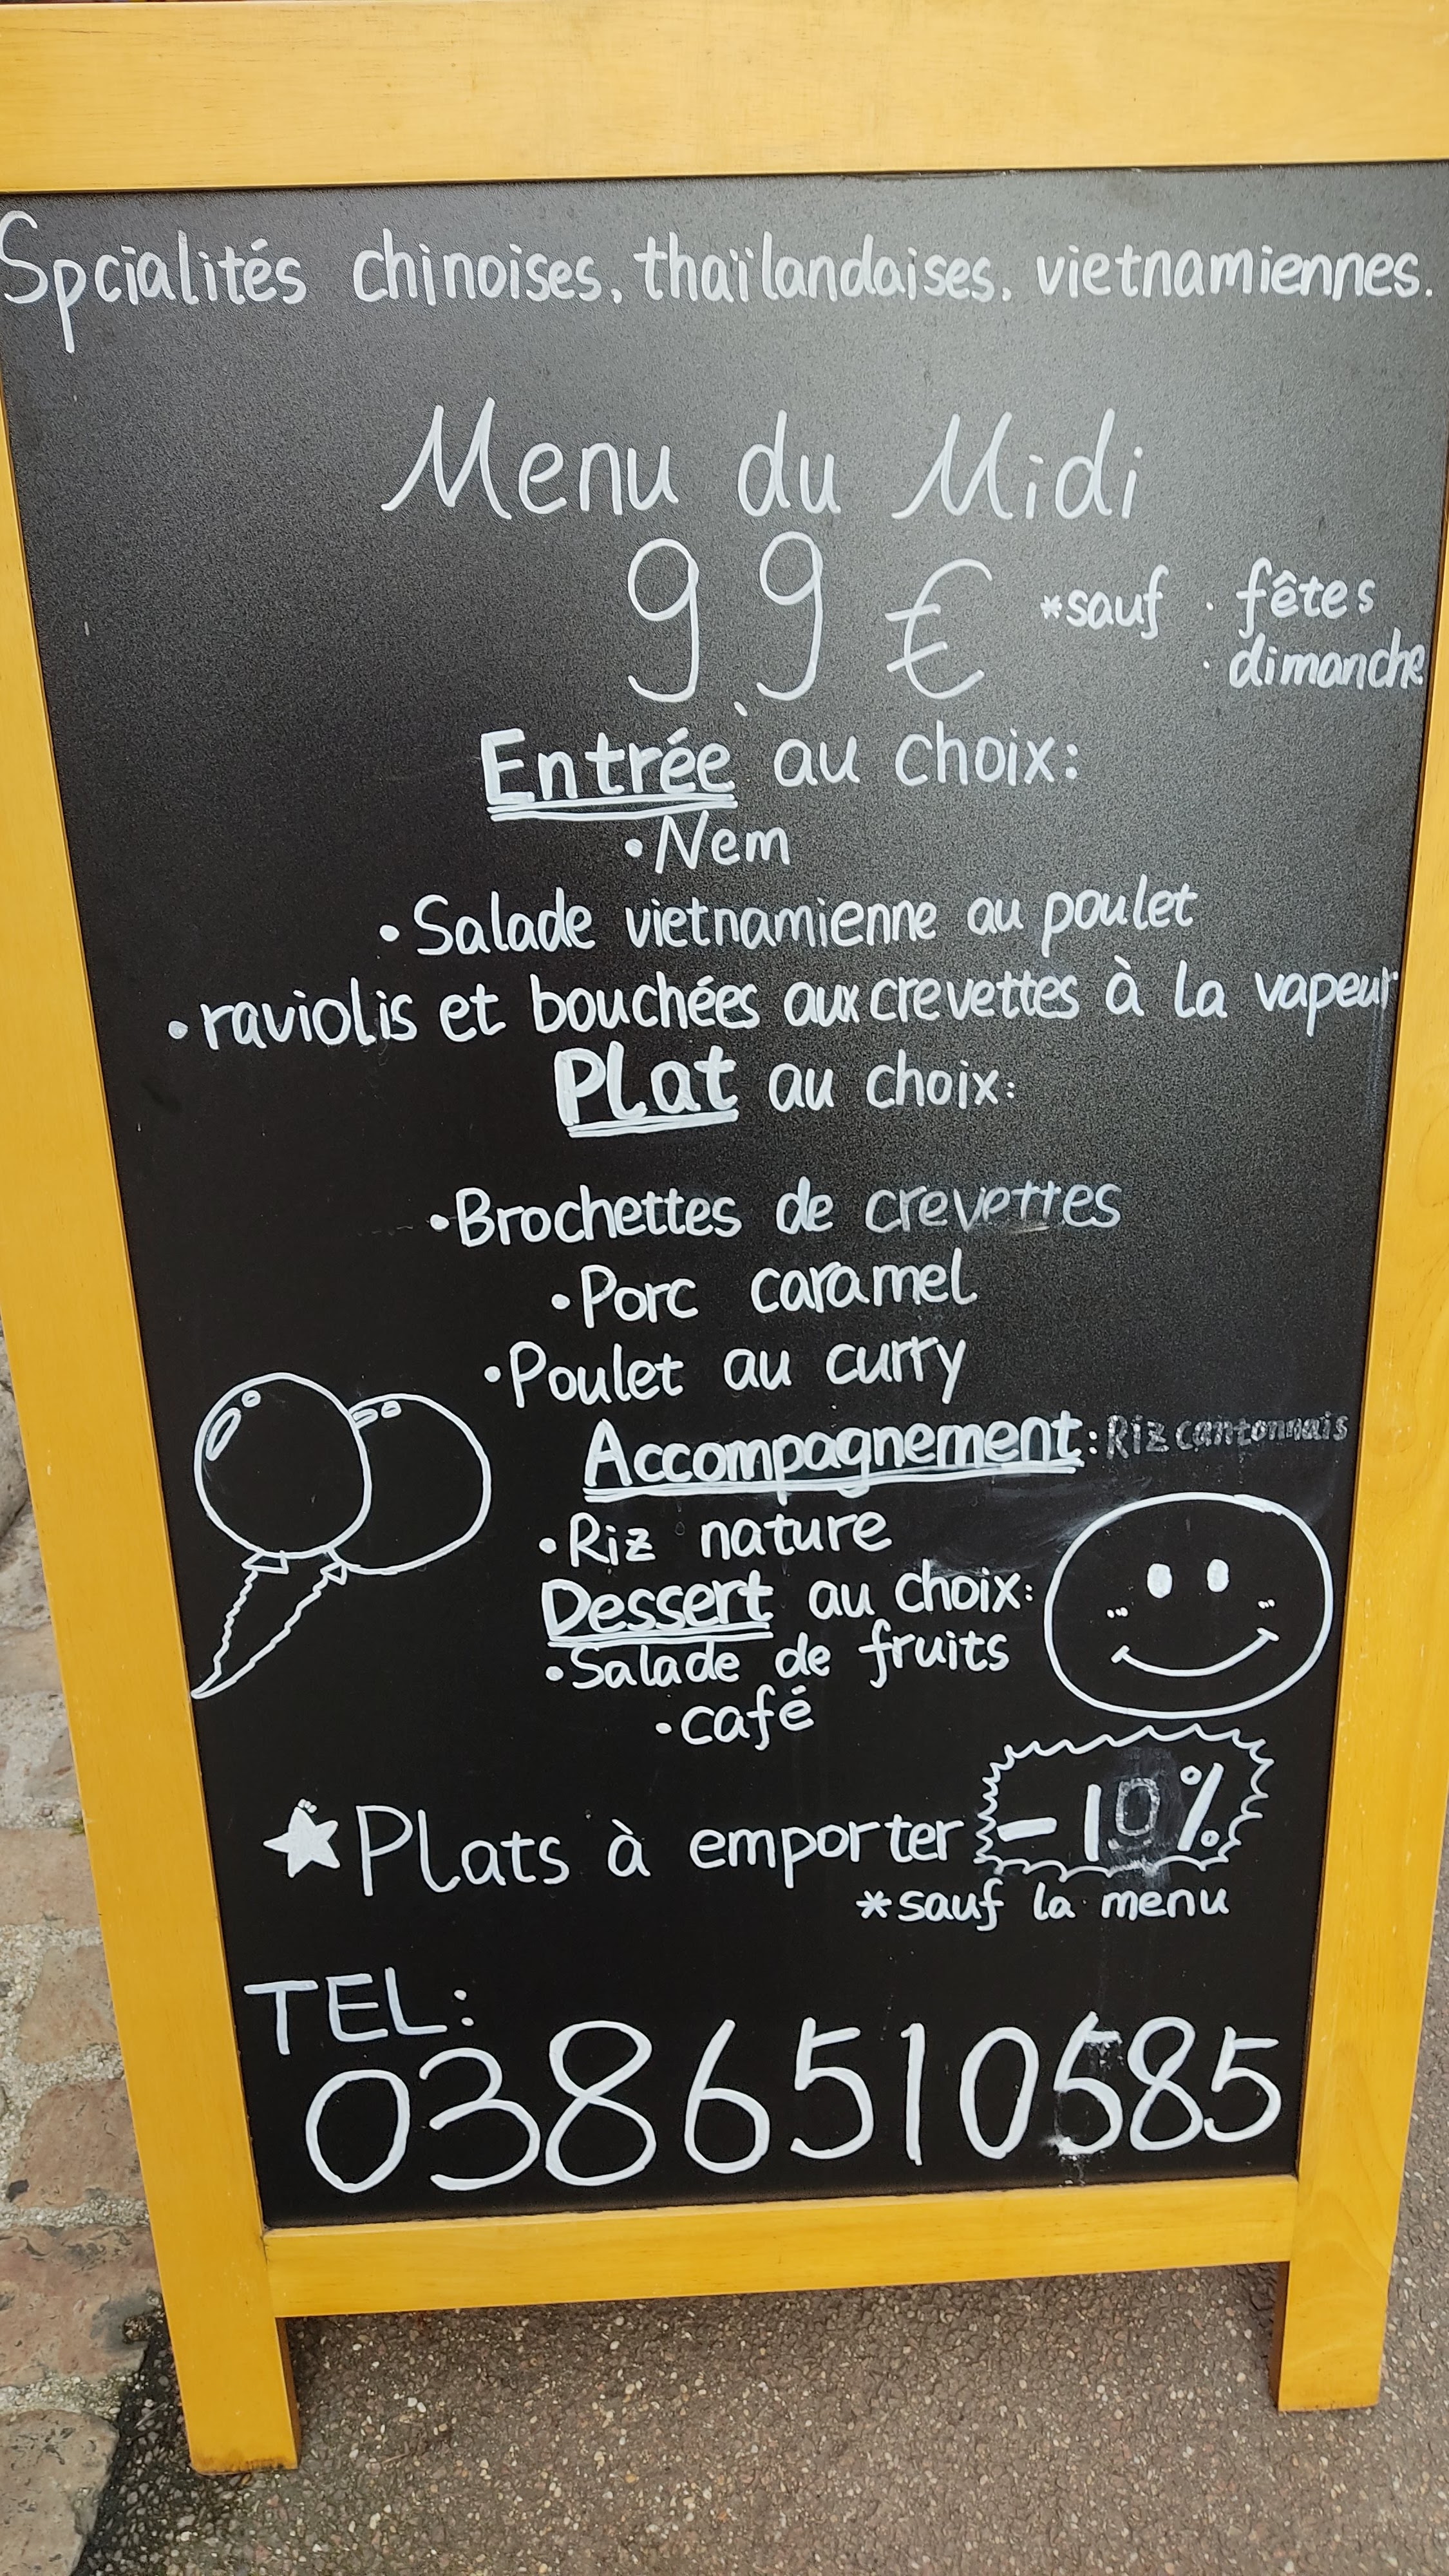 Spcialités chinoises, thaïlandaises, vietnamiennes.
Menu du Midi
9,9 € *sauf · fêtes
· dimanche
Entrée au choix:
•Nem
•Salade vietnamienne au poulet
•raviolis et bouchées aux crevettes à la vapeur
Plat au choix:
•Brochettes de crevettes
•Porc caramel
•Poulet au curry
Accompagnement: Riz cantonnais
•Riz nature
Dessert au choix:
•Salade de fruits
•café
★Plats à emporter -10%
*sauf la menu
TEL:
0386510585